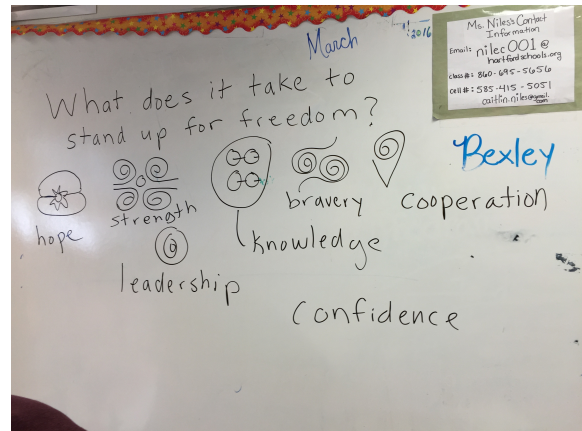 March
2016
Ms. Niles's Contact
Information
Email: nilec001@
hartfordschools.org
class#: 860-695-5656
cell#: 585-415-5051
caitlin.niles@gmail.com
What does it take to
stand up for freedom?
Bexley
hope
strength
knowledge
bravery
cooperation
leadership
confidence